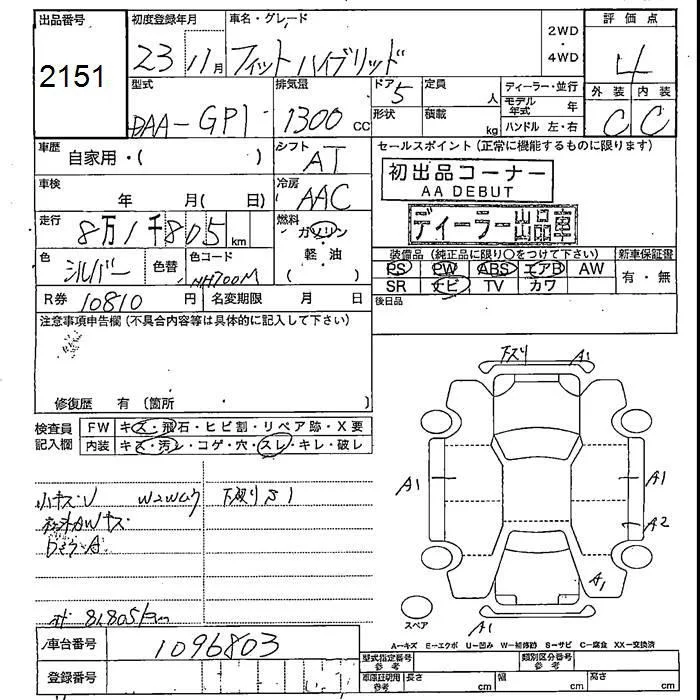 出品番号 初度登録年月 車名・グレード 評価点
2151 23 11月 フィットハイブリッド 2WD・4WD 4
型式 排気量 ドア 定員 ディーラー・並行 外装 内装
DAA-GP1 1300cc 5 人 モデル年式 年 C C
形状 積載 kg ハンドル 左・右
車歴 自家用・( ) シフト AT セールスポイント(正常に機能するものに限ります)
初出品コーナー
AA DEBUT
車検 年 月( 日) 冷房 AAC
ディーラー出品車
走行 8万1千805km 燃料 ガソリン
軽油
( )
色 シルバー 色替 色コード NH700M
装備品(純正品に限り○をつけて下さい) 新車保証書
PS PW ABS エアB AW 有・無
SR ナビ TV カワ
R券 10810円 名変期限 月 日 後日品
注意事項申告欄(不具合内容等は具体的に記入して下さい)
修復歴 有(箇所 )
検査員記入欄 FW キズ・飛石・ヒビ割・リペア跡・X要
内装 キズ・汚レ・コゲ・穴・スレ・キレ・破レ
下ズリ A1
A1 A1
A2
A1
A1
スペア
小キズ・U
下廻りS1
81805km
A-キズ E-エクボ U-凹み W-補修跡 S-サビ C-腐食 XX-交換済
車台番号 1096803
型式指定番号 参考 類別区分番号 参考
登録番号
車庫証明用参考 長さ cm 幅 cm 高さ cm